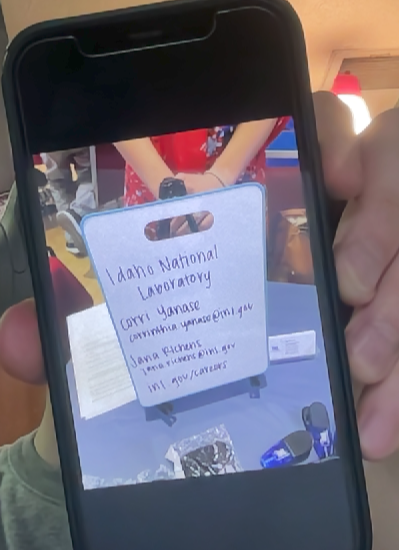 Idaho National
Laboratory
Corri Yanase
corrinthia.yanase@inl.gov
Jana Richens
jana.richens@inl.gov
inl.gov/careers